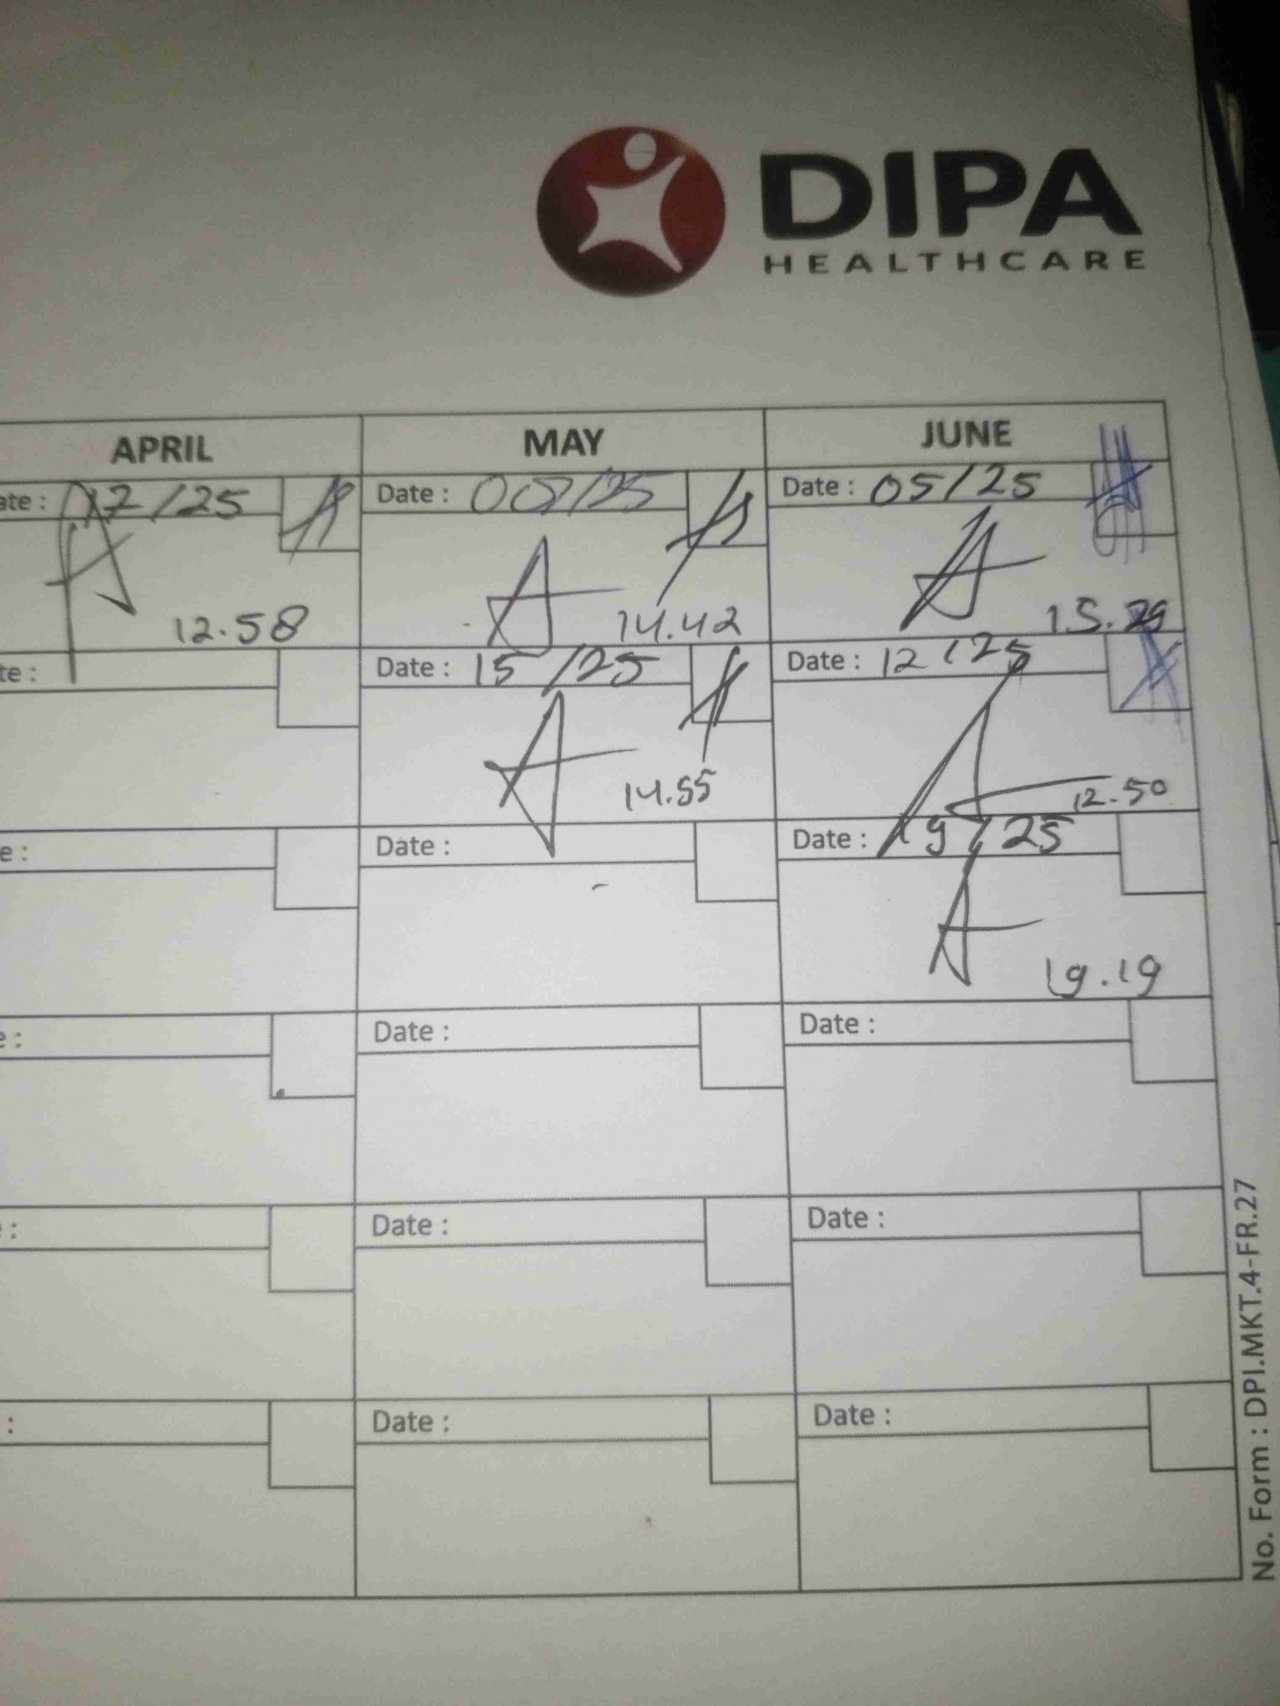 DIPA
HEALTHCARE
APRIL MAY JUNE
ate : 17/25 Date : 08/25 Date : 05/25
12.58 14.42 15.29
te : Date : 15/25 Date : 12/25
14.55 12.50
e : Date : Date : 19/25
19.19
e : Date : Date :
: Date : Date :
: Date : Date :
No. Form : DPI.MKT.4-FR.27